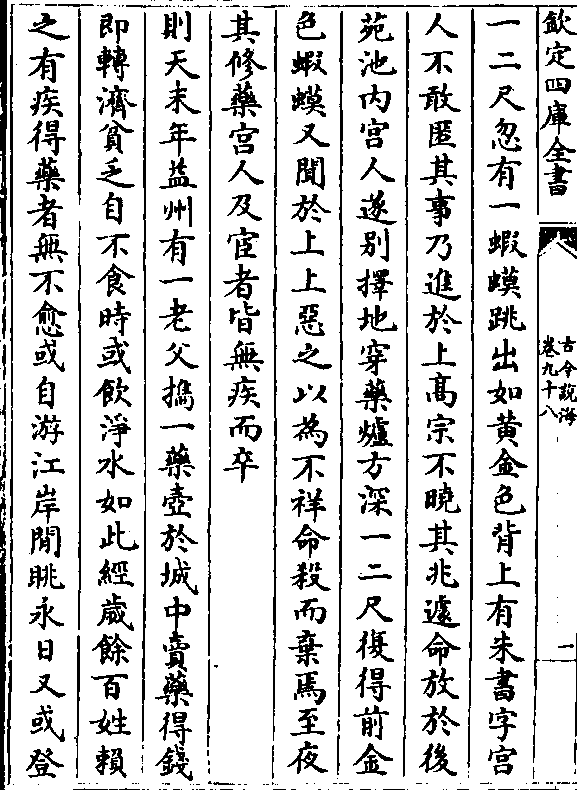 欽定四庫全書
古今說海
卷九十八
一
一二尺忽有一蝦蟆跳出如黄金色背上有朱書字宫
人不敢匿其事乃進於上髙宗不曉其兆遽命放於後
苑池内宫人遂别擇地穿藥爐方深一二尺復得前金
色蝦蟆又聞於上上惡之以為不祥命殺而棄焉至夜
其修藥宫人及宦者皆無疾而卒
則天末年益州有一老父攜一藥壺於城中賣藥得錢
即轉濟貧乏自不食時或飲淨水如此經歲餘百姓賴
之有疾得藥者無不愈或自游江岸閒眺永日又或登